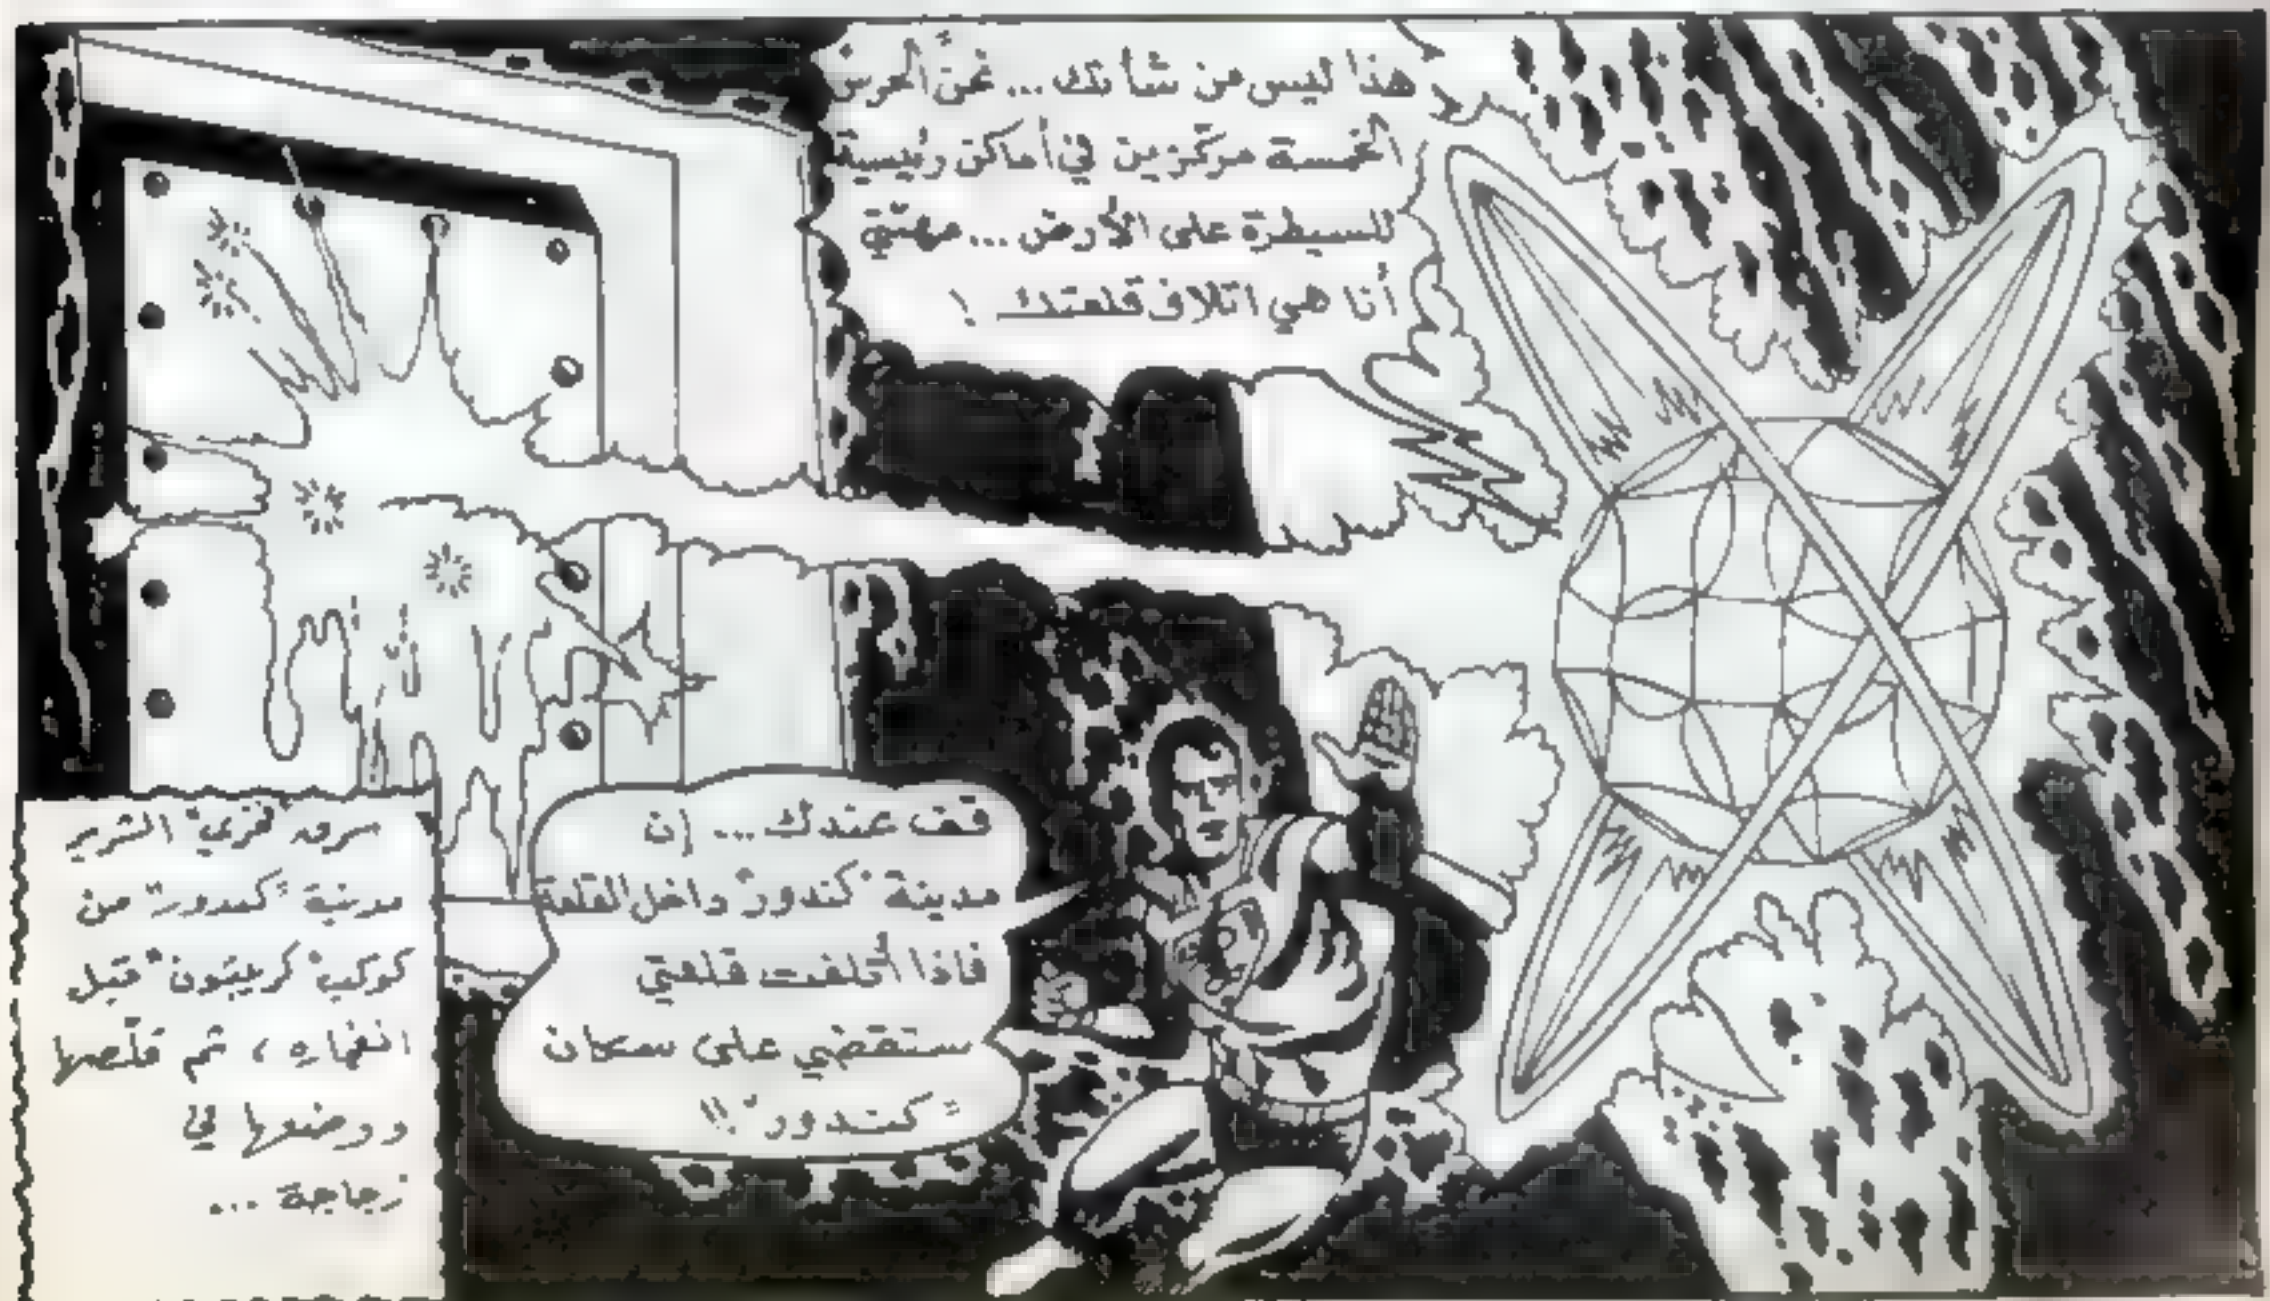 هذا ليس من شأنك ... نحن الحرس
الخمسة مركّزين في أماكن رئيسية
للسيطرة على الأرض ... مهمّتي
أنا هي اتلاف قلعتك !
قف عندك ... إن
مدينة "كندور" داخل القلعة
فاذا أتلفت قلعتي
ستقضي على سكان
"كندور" !!
سرق الشرير
مدينة "كندور" من
كوكب "كريبتون" قبل
انفجاره ، ثم قلّصها
ووضعها في
زجاجة ...